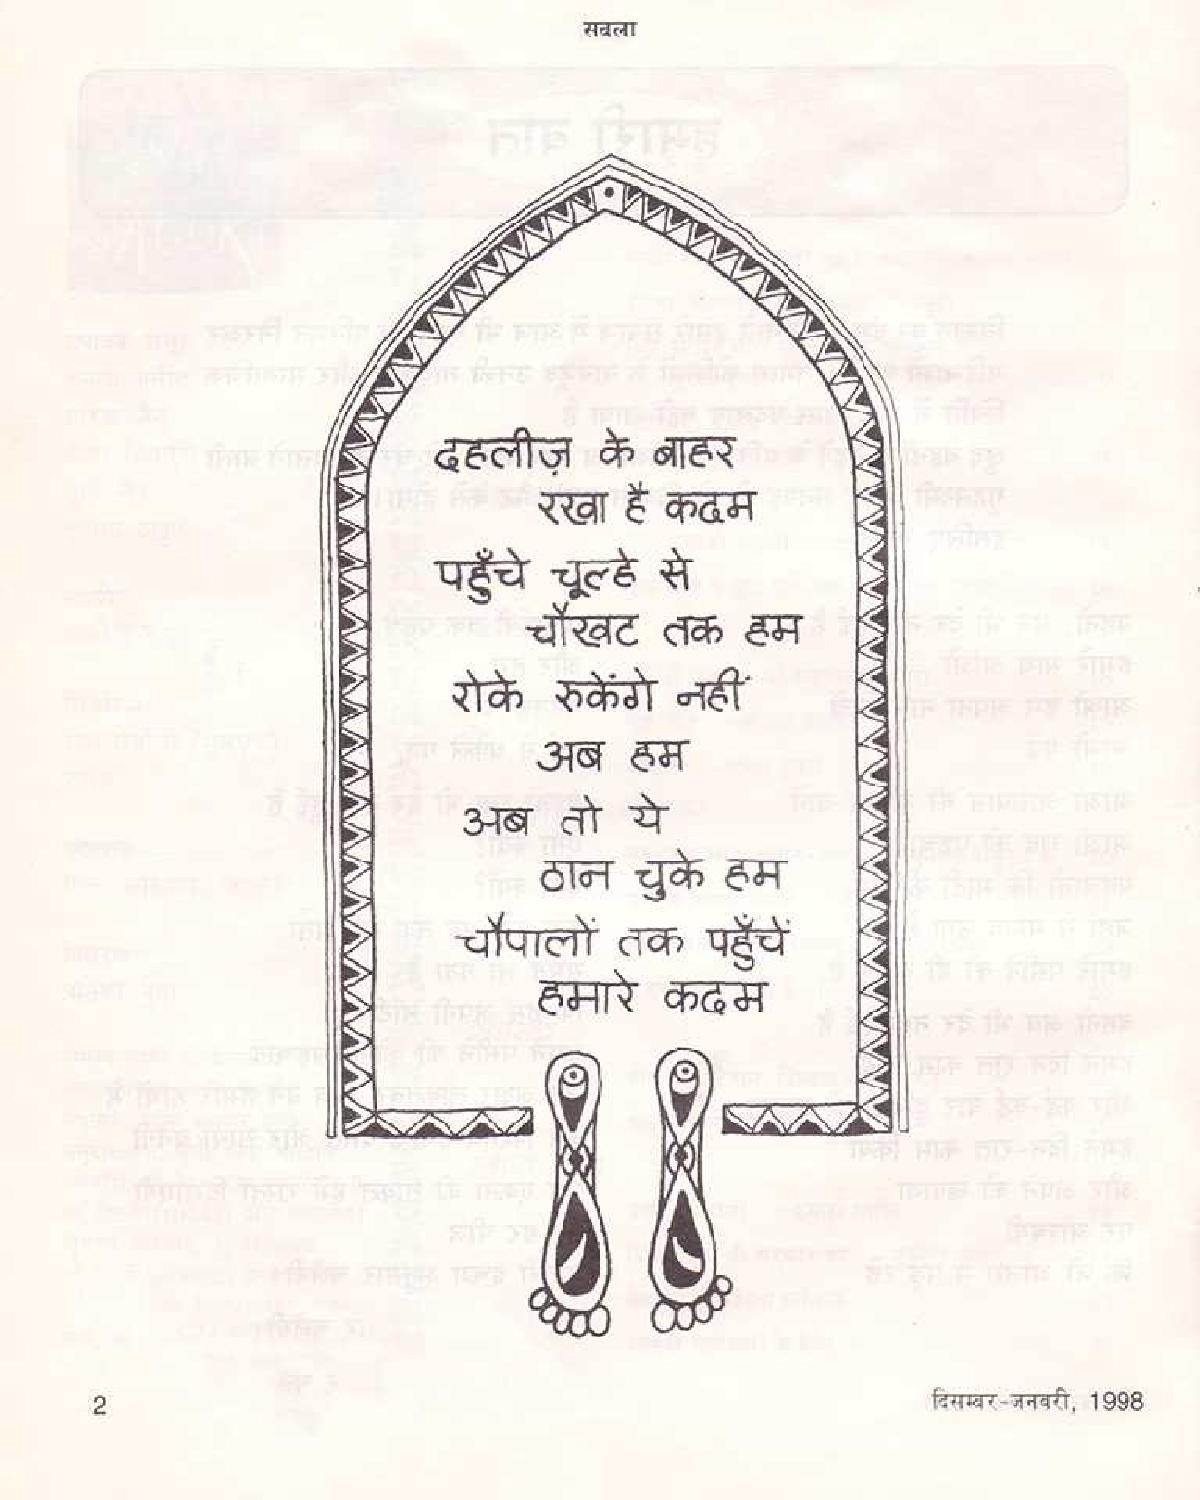 सबला
दहलीज़ के बाहर
रखा है कदम
पहुँचे चूल्हे से
चौखट तक हम
रोके रुकेंगे नहीं
अब हम
अब तो ये
ठान चुके हम
चौपालों तक पहुँचें
हमारे कदम
2
दिसम्बर-जनवरी, 1998